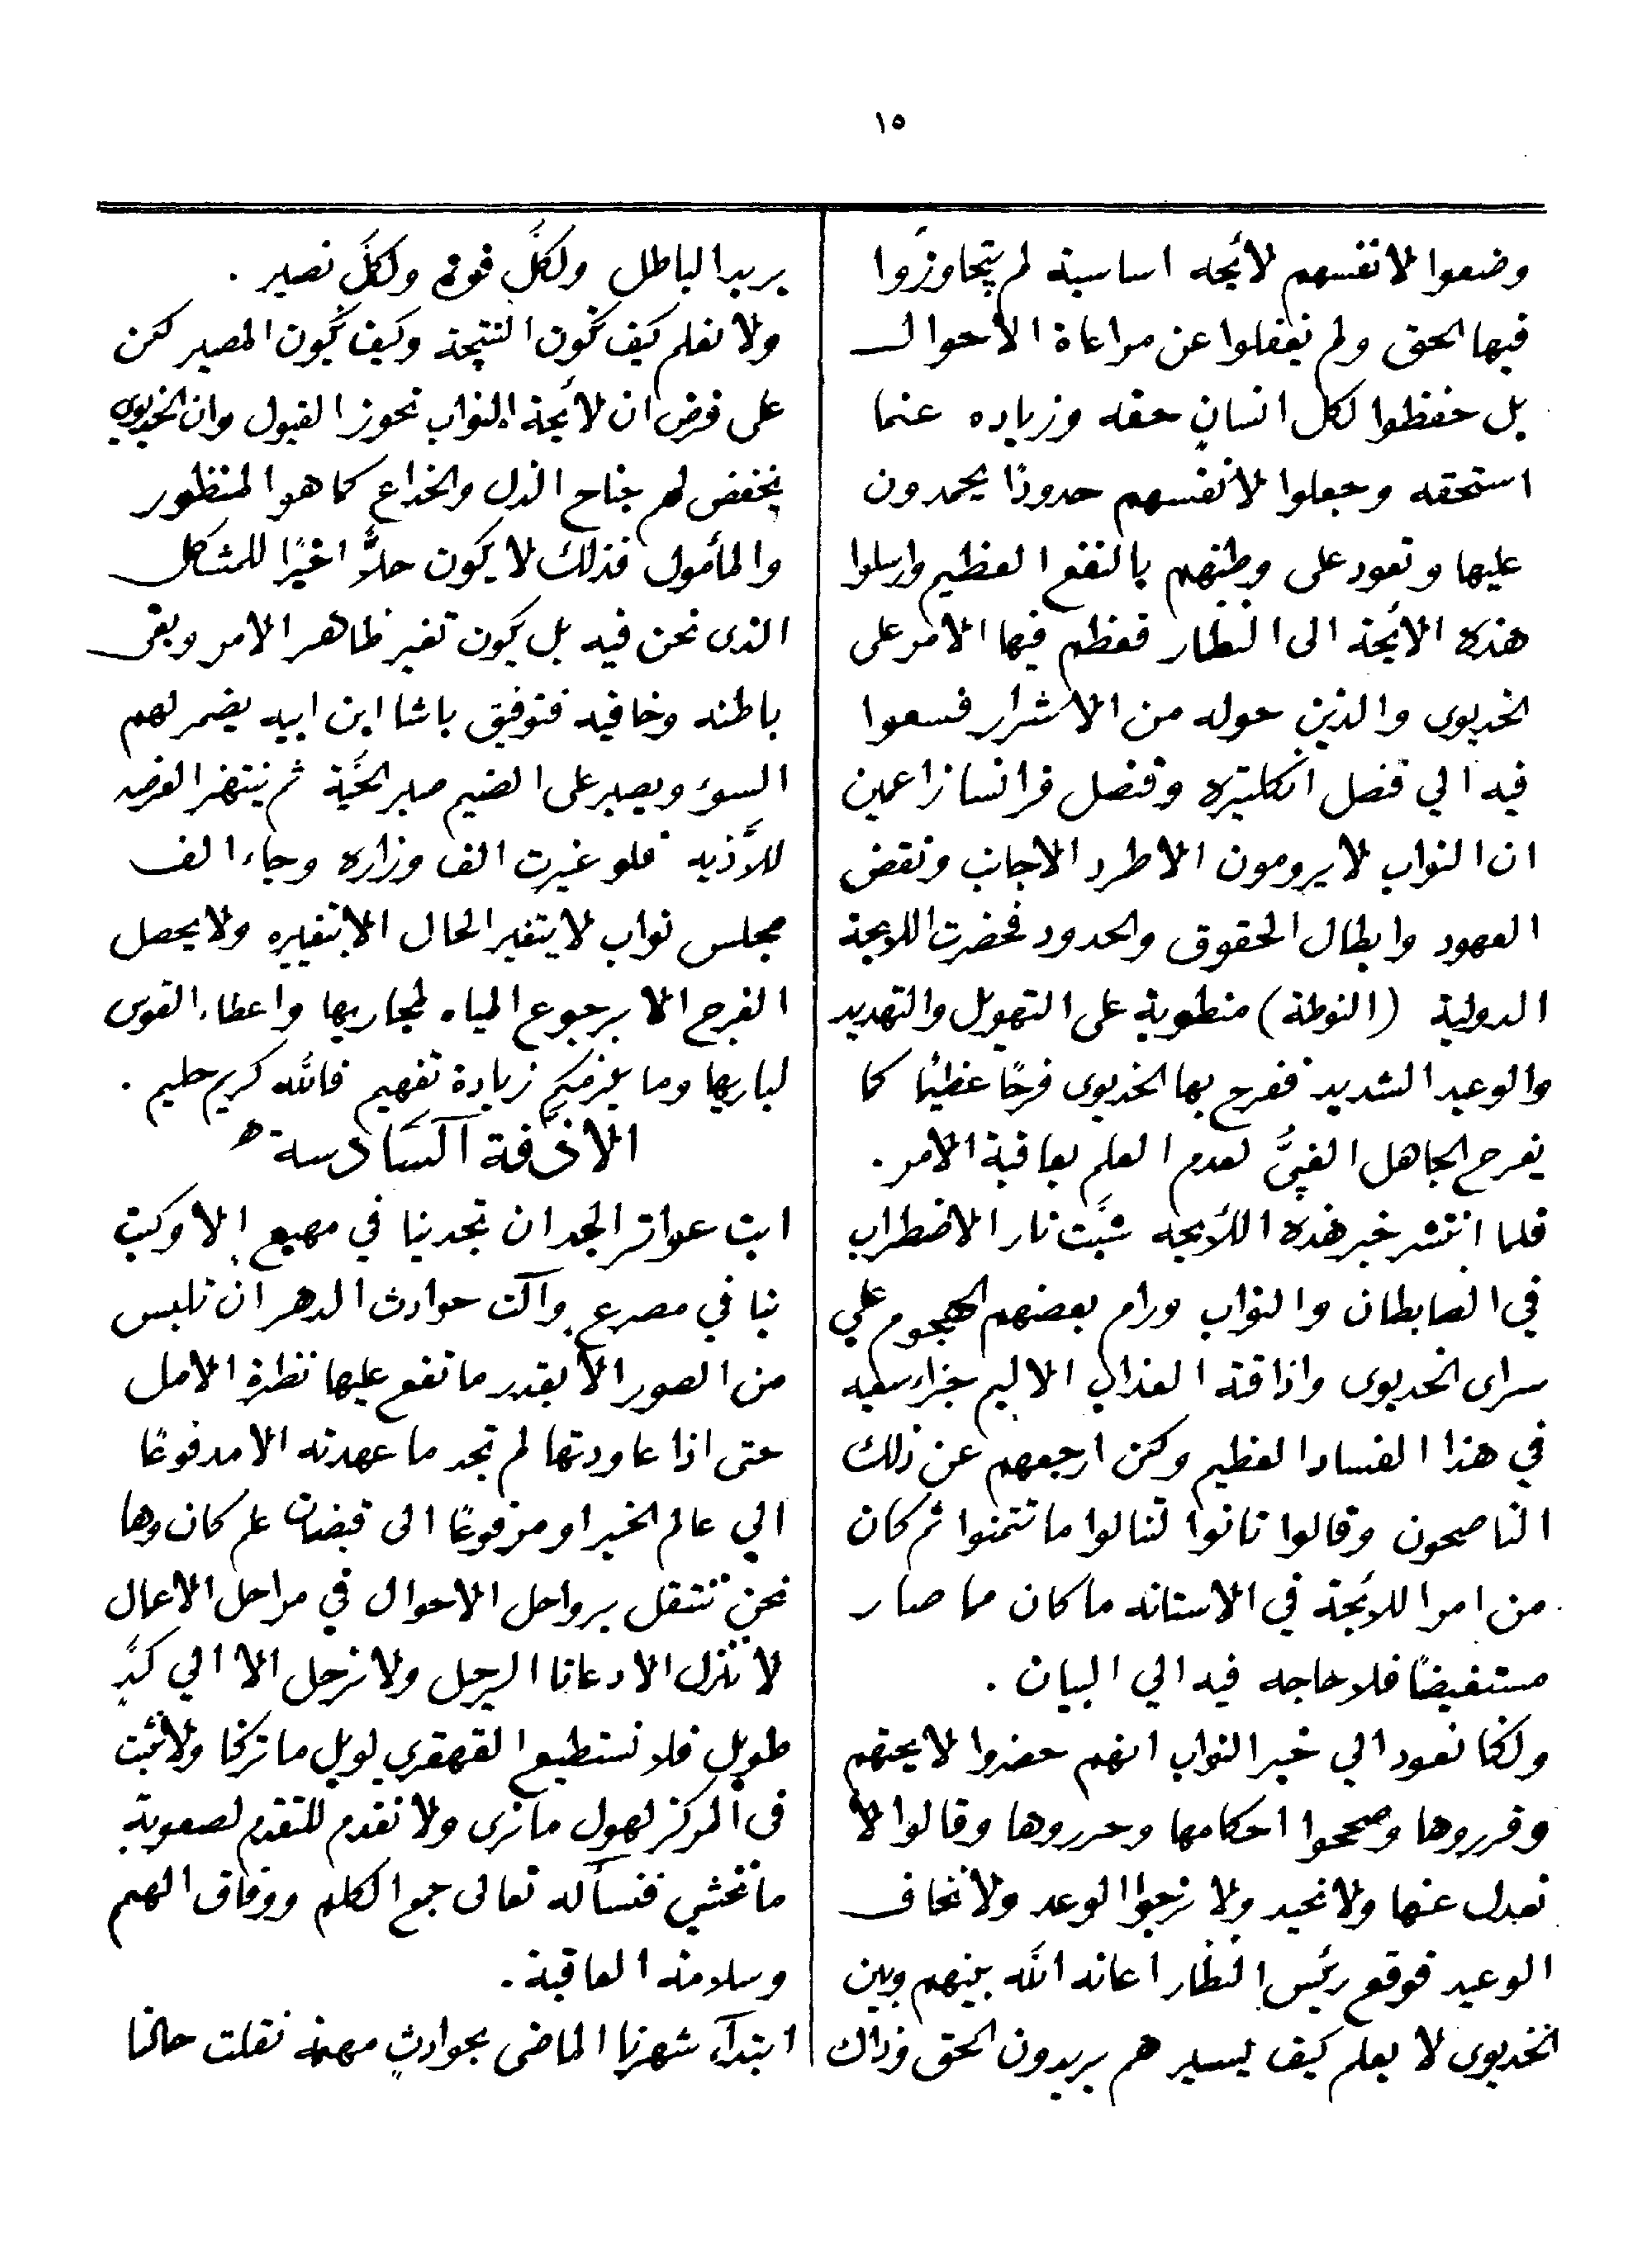 ١٥
وضعوا لانفسهم لأئحه اساسية لم يتجاوزوا
فيها الحق ولم يغفلوا عن مراعاة الاحوال
بل حفظوا لكل انسانٍ حقه وزياده عنما
استحقه وجعلوا لانفسهم حدودًا يحمدون
عليها وتعود على وطنهم بالنفع العظيم وارسلوا
هذه الأئحة الى النظار فعظم فيها الامر على
الخديوى والذين حوله من الاشرار فسعوا
فيه الي قنصل انكليتره وقنصل فرانسا زاعمين
ان النواب لا يرومون الا طرد الاجانب ونقض
العهود وابطال الحقوق والحدود فحضرت اللايحة
الدولية (النوطة) منطوية على التهويل والتهديد
والوعيد الشديد ففرح بها الخديوى فرحًا عظيمًا كما
يفرح الجاهل الغبىُّ لعدم العلم بعاقبة الامر .
فلما انتشر خبر هذه اللأيحه شبَّت نار الاضطراب
في الضابطان والنواب ورام بعضهم الهجوم علي
سراى الخديوى واذاقته العذاب الاليم جزاء سعيه
في هذا الفساد العظيم ولكن ارجعهم عن ذلك
الناصحون وقالوا تانوا لتنالوا ما تتمنوا ثم كان
من امر اللائحة في الاستانه ما كان مما صار
مستفيضًا فلا حاجه فيه الي البيان .
ولكنا نعود الي خبر النواب انهم حضروا لايحتهم
وقرروها وصححوا احكامها وحرروها وقالوا لا
نعدل عنها ولا نحيد ولا نرجوا الوعد ولا نخاف
الوعيد فوقع رئيس النظار اعانه الله بينهم وبين
الخديوى لا يعلم كيف يسير هم يريدون الحق وذاك
يريد الباطل ولكلٍّ قوة ولكلٍّ نصير .
ولا نعلم كيف تكون النتيجة وكيف يكون المصير لكن
على فرض ان لائحة النواب تحوز القبول وان الخديوى
يخفض لهم جناح الذل والخداع كما هو المنظور
والمأمول فذلك لا يكون حلاًّ اخيرًا للمشكل
الذى نحن فيه بل يكون تغير ظاهر الامر وبقى
باطنه وخافيه فتوفيق باشا ابن ابيه يضمر لهم
السوء ويصبر على الضيم صبر الحيَّة ثم ينتهز الفرصه
للأذيه فلو غيرت الف وزاره وجاء الف
مجلس نواب لا يتغير الحال الا بتغييره ولا يحصل
الفرج الا برجوع المياه لمجاريها واعطاء القوس
لباريها وما يلزمكم زيادة تفهيم فالله كريم حليم .
الازفة السادسة
ابت عواثر الجد ان تجد بنا في مهيع الا وكبت
بنا في مصرع وآلت حوادث الدهر ان تلبس
من الصور الا بقدر ما تقع عليها نظرة الامل
حتى اذا عاودتها لم تجد ما عهدته الا مدفوعًا
الي عالم الخبر او مرفوعًا الى قبضات علم كان وها
نحن ننتقل برواحل الاحوال في مراحل الاعمال
لا ننزل الا دعانا الرحيل ولا نرحل الا الي كدٍّ
طويل فلا نستطيع القهقري لويل ما تركنا ولا نثبت
فى المركز لهول ما نرى ولا نقدم للتقدم لصعوبة
ما نخشي فنسأله تعالى جمع الكلم ووفاق الهمم
وسلامة العاقبة .
ابتدآء شهرنا الماضى بحوادثٍ مهمة نقلت حالنا